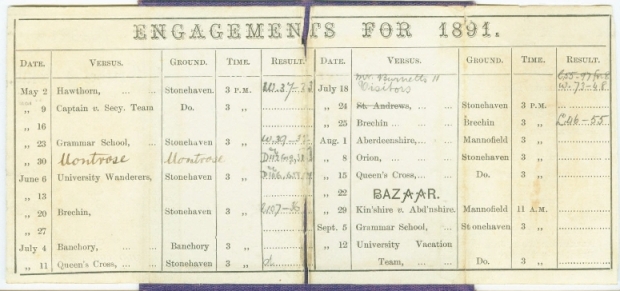 ENGAGEMENTS FOR 1891.
DATE. VERSUS. GROUND. TIME. RESULT.
May 2 Hawthorn, ... ... Stonehaven 3 P.M.
„ 9 Captain v. Secy. Team Do. 3 „
„ 16
„ 23 Grammar School, ... Stonehaven 3 „
„ 30 Montrose Montrose 3 „
June 6 University Wanderers, Stonehaven 3 „
„ 13
„ 20 Brechin, Stonehaven 3 „
„ 27
July 4 Banchory, ... ... Banchory 3 „
„ 11 Queen's Cross, ... ... Stonehaven 3 „
DATE. VERSUS. GROUND. TIME. RESULT.
July 18 Visitors W. 73-48
„ 24 St. Andrews, ... ... Stonehaven 3 P.M.
„ 25 Brechin ... ... Brechin 3 „ L46-55
Aug. 1 Aberdeenshire, ... Mannofield 3 „
„ 8 Orion, ... ... Stonehaven 3 „
„ 15 Queen's Cross, ... ... Do. 3 „
„ 22 BAZAAR.
„ 29 Kin'shire v. Abd'nshire. Mannofield 11 A.M.
Sept. 5 Grammar School, ... Stonehaven 3 „
„ 12 University Vacation
Team, ... ... Do. 3 „